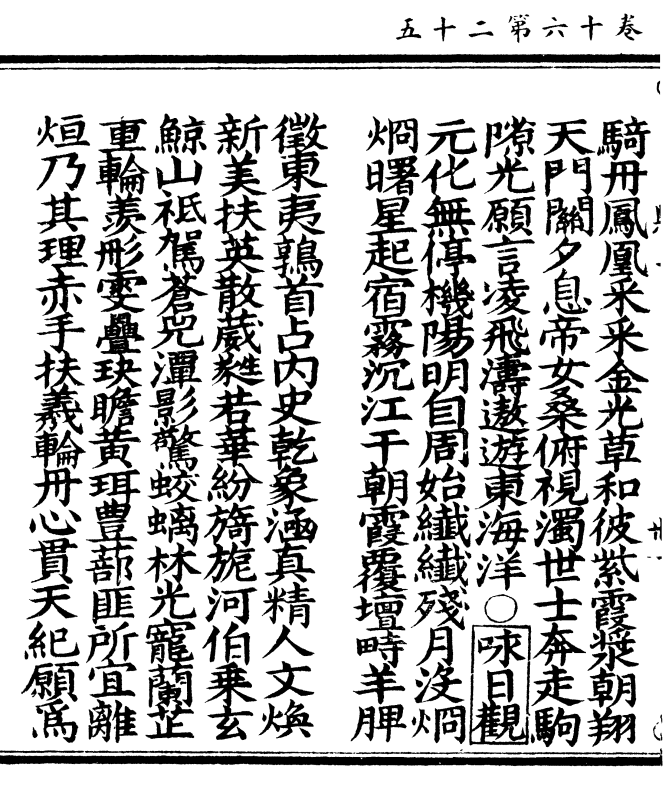 卷十六第二十五
騎丹鳳凰采采金光草和彼紫霞漿朝翔
天門關夕息帝女桑俯視濁世士奔走駒
隙光願言凌飛濤遨遊東海洋○咏日觀
元化無停機陽明自周始纎纎殘月没烱
烱曙星起宿霧沉江干朝霞覆壇畤羊胛
徵東夷鶉首占内史乾象涵真精人文煥
新美扶英散葳蕤若華紛旖旎河伯乗玄
鯨山祗駕蒼兕潭影驚蛟螭林光寵蘭芷
重輪羨形雯疊玦瞻黃珥豊蔀匪所宜離
烜乃其理赤手扶羲輪丹心貫天紀願爲